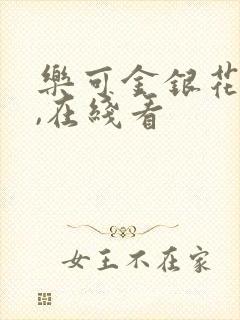 樂可金銀花
,在綫看
女王不在家